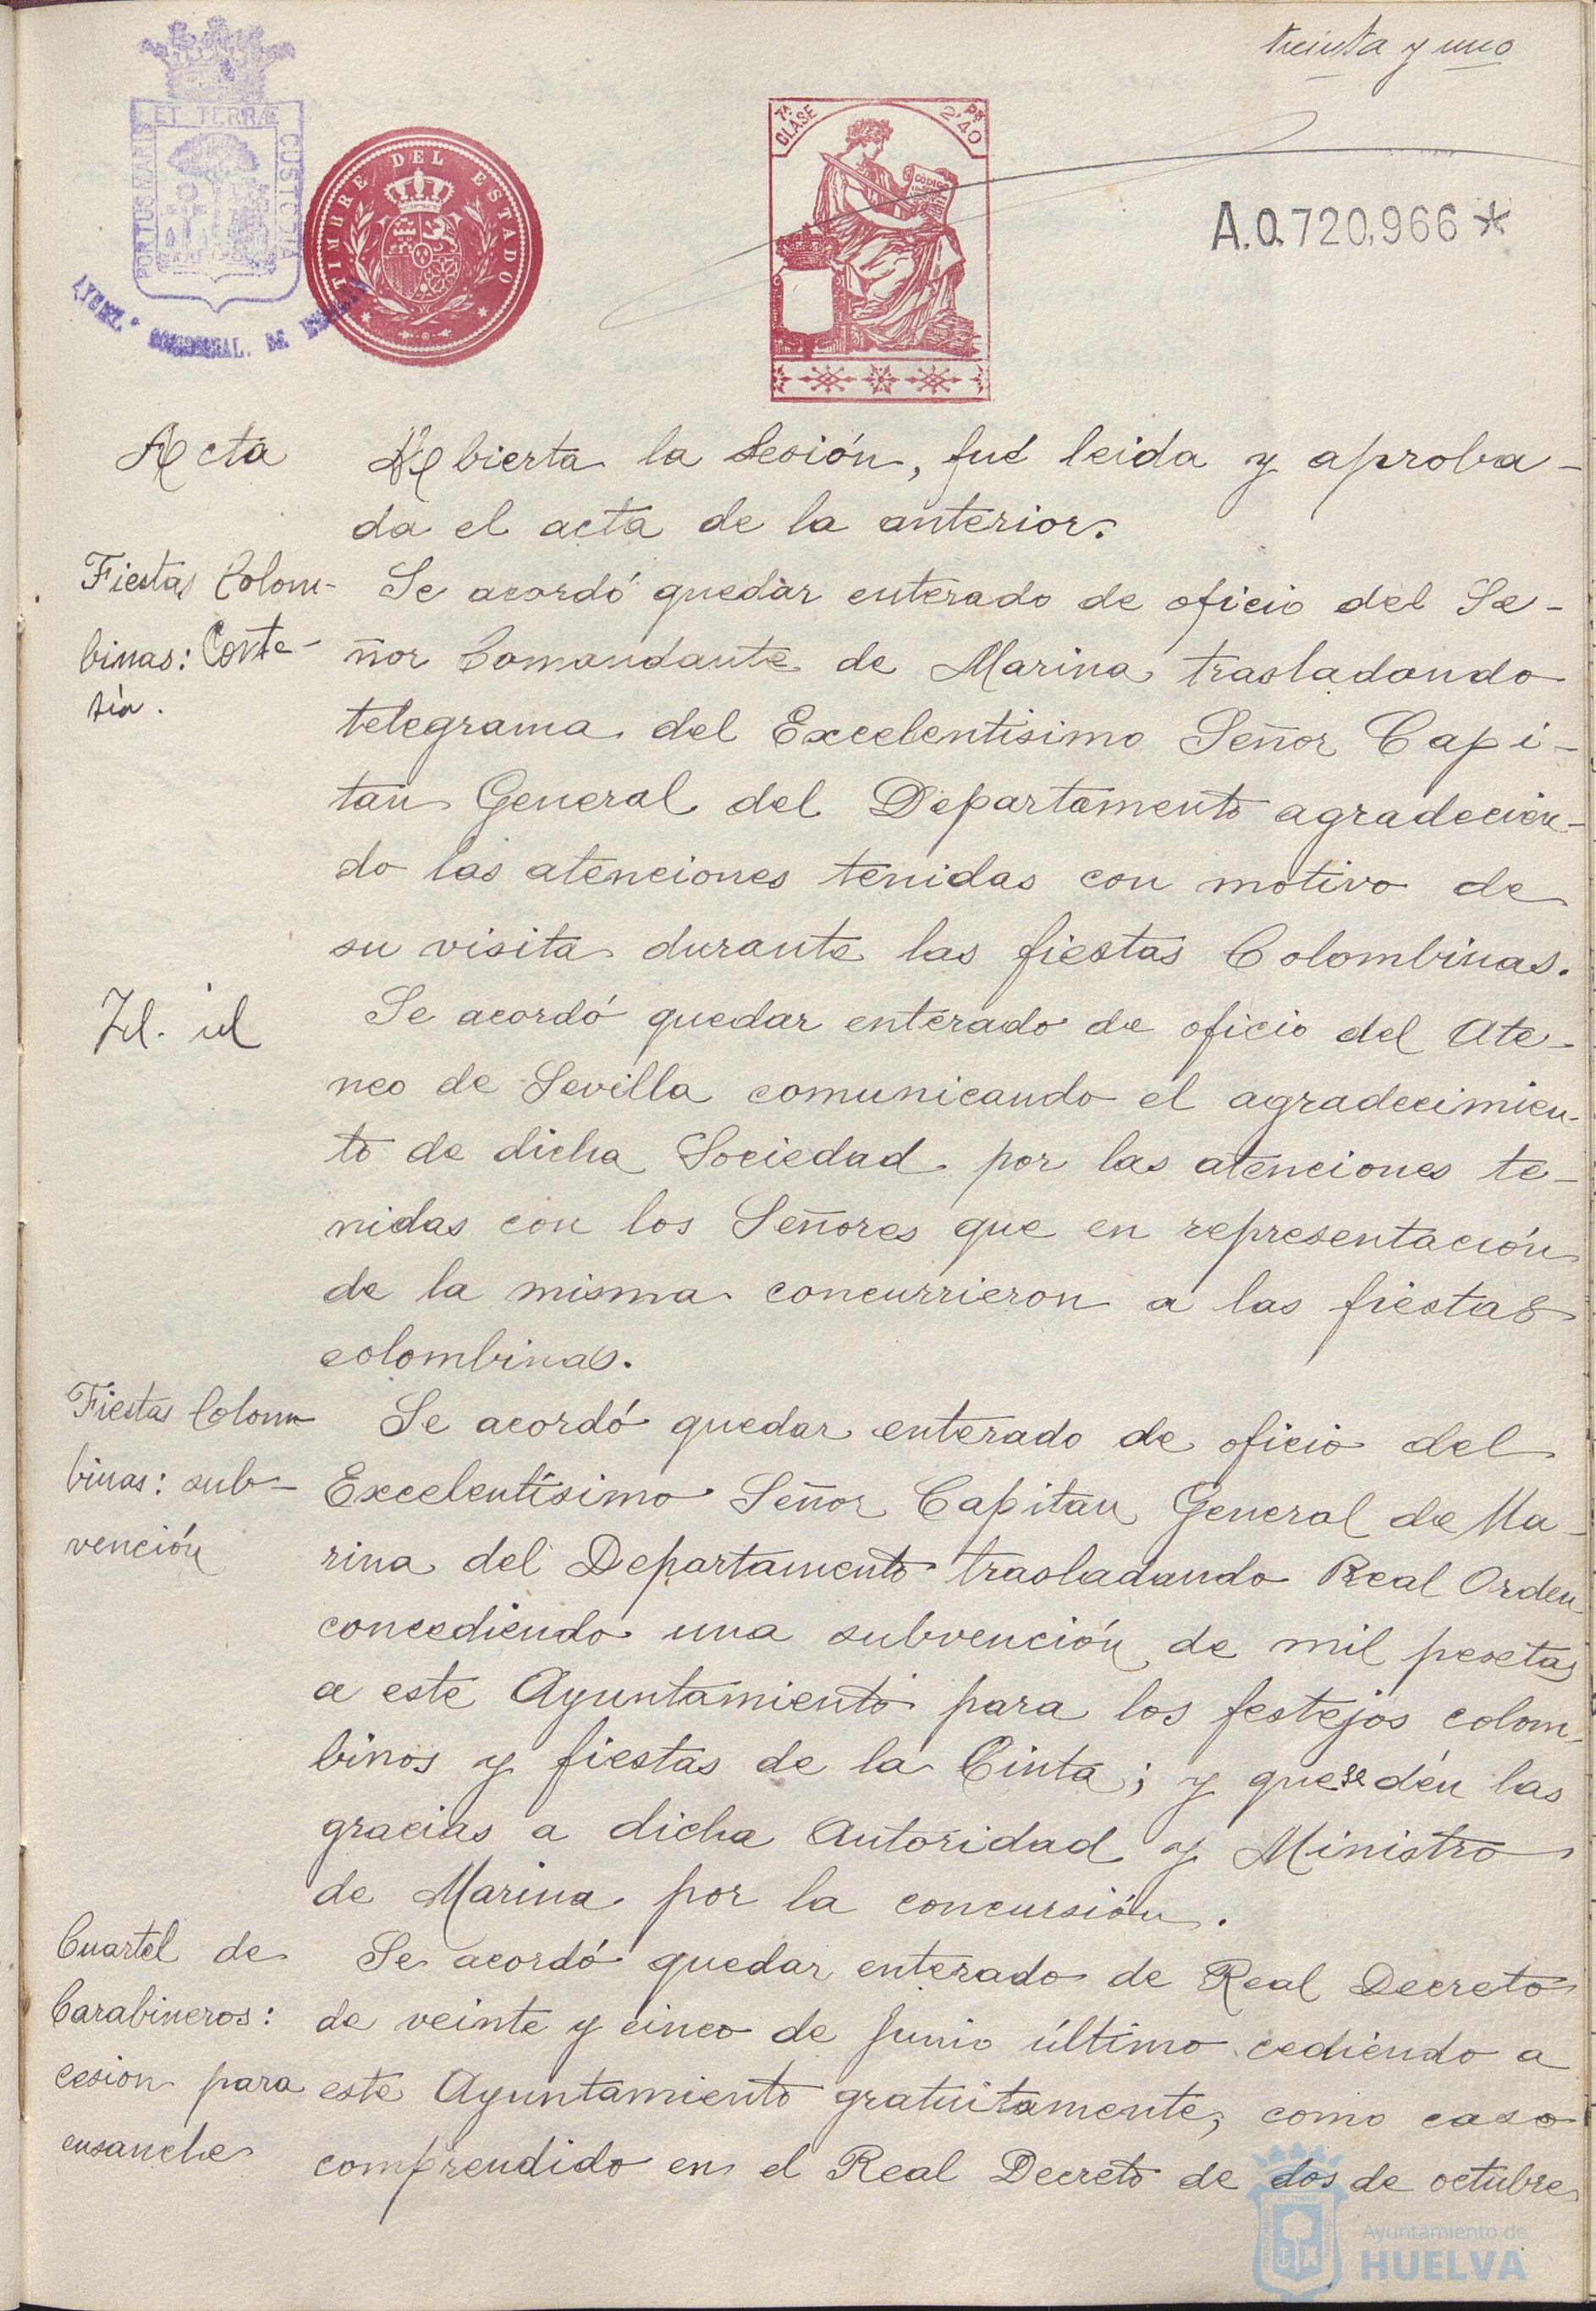 treinta y uno
ET TERRÆ
PORTUS MARIS
CUSTODIA
AYUNT.º DE
TIMBRE DEL ESTADO
7ª CLASE
2'40 Ps
CODIGO
A.0.720,966 *
Acta
Abierta la Sesión, fué leida y aproba-
da el acta de la anterior.
Fiestas Colom-
binas: Corte-
sía.
Se acordó quedar enterado de oficio del Se-
ñor Comandante de Marina trasladando
telegrama del Excelentisimo Señor Capi-
tan General del Departamento agradecien-
do las atenciones tenidas con motivo de
su visita durante las fiestas Colombinas.
Id. id
Se acordó quedar enterado de oficio del Ate-
neo de Sevilla comunicando el agradecimien-
to de dicha Sociedad por las atenciones te-
nidas con los Señores que en representación
de la misma concurrieron a las fiestas
colombinas.
Fiestas Colom
binas: sub-
vención
Se acordó quedar enterado de oficio del
Excelentísimo Señor Capitan General de Ma-
rina del Departamento trasladando Real Orden
concediendo una subvención de mil pesetas
a este Ayuntamiento para los festejos colom-
binos y fiestas de la Cinta; y que se dén las
gracias a dicha Autoridad y Ministro
de Marina por la concursión.
Cuartel de
Carabineros:
cesion para
ensanche
Se acordó quedar enterado de Real Decreto
de veinte y cinco de Junio último cediendo a
este Ayuntamiento gratuitamente, como caso
comprendido en el Real Decreto de dos de octubre
Ayuntamiento de
HUELVA